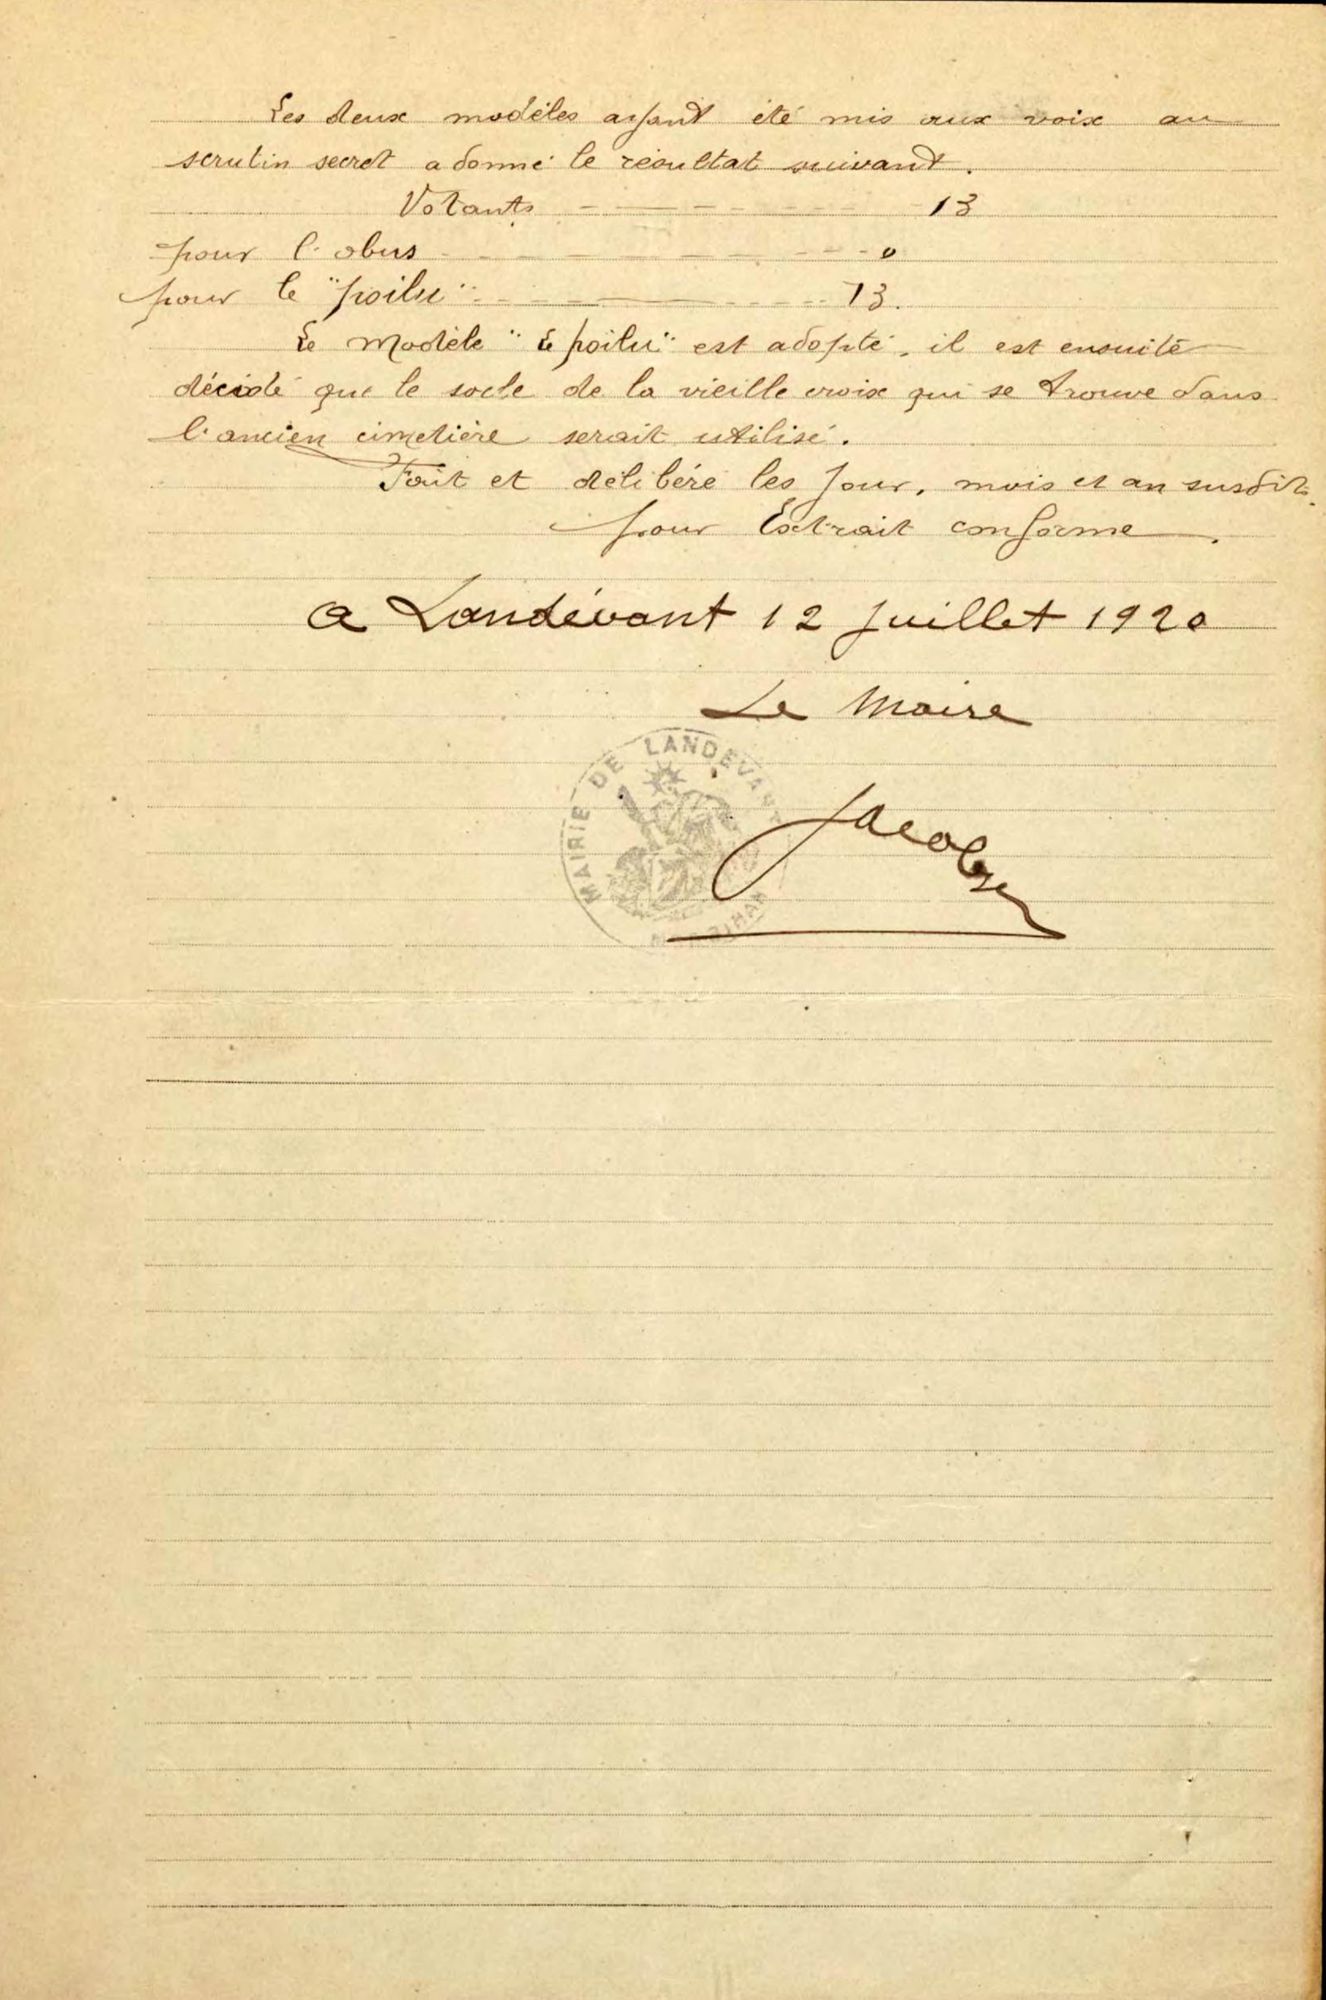 Les deux modèles ayant été mis aux voix au
scrutin secret a donné le résultat suivant.
Votants 13
pour l'obus 0
pour le "poilu" 13.
Le modèle "Le poilu" est adopté, il est ensuite
décidé que le socle de la vieille croix qui se trouve dans
l'ancien cimetière serait utilisé.
Fait et délibéré les jour, mois et an susdits.
pour Extrait conforme.
a Landévant 12 juillet 1920
Le Maire
MAIRIE DE LANDEVANT